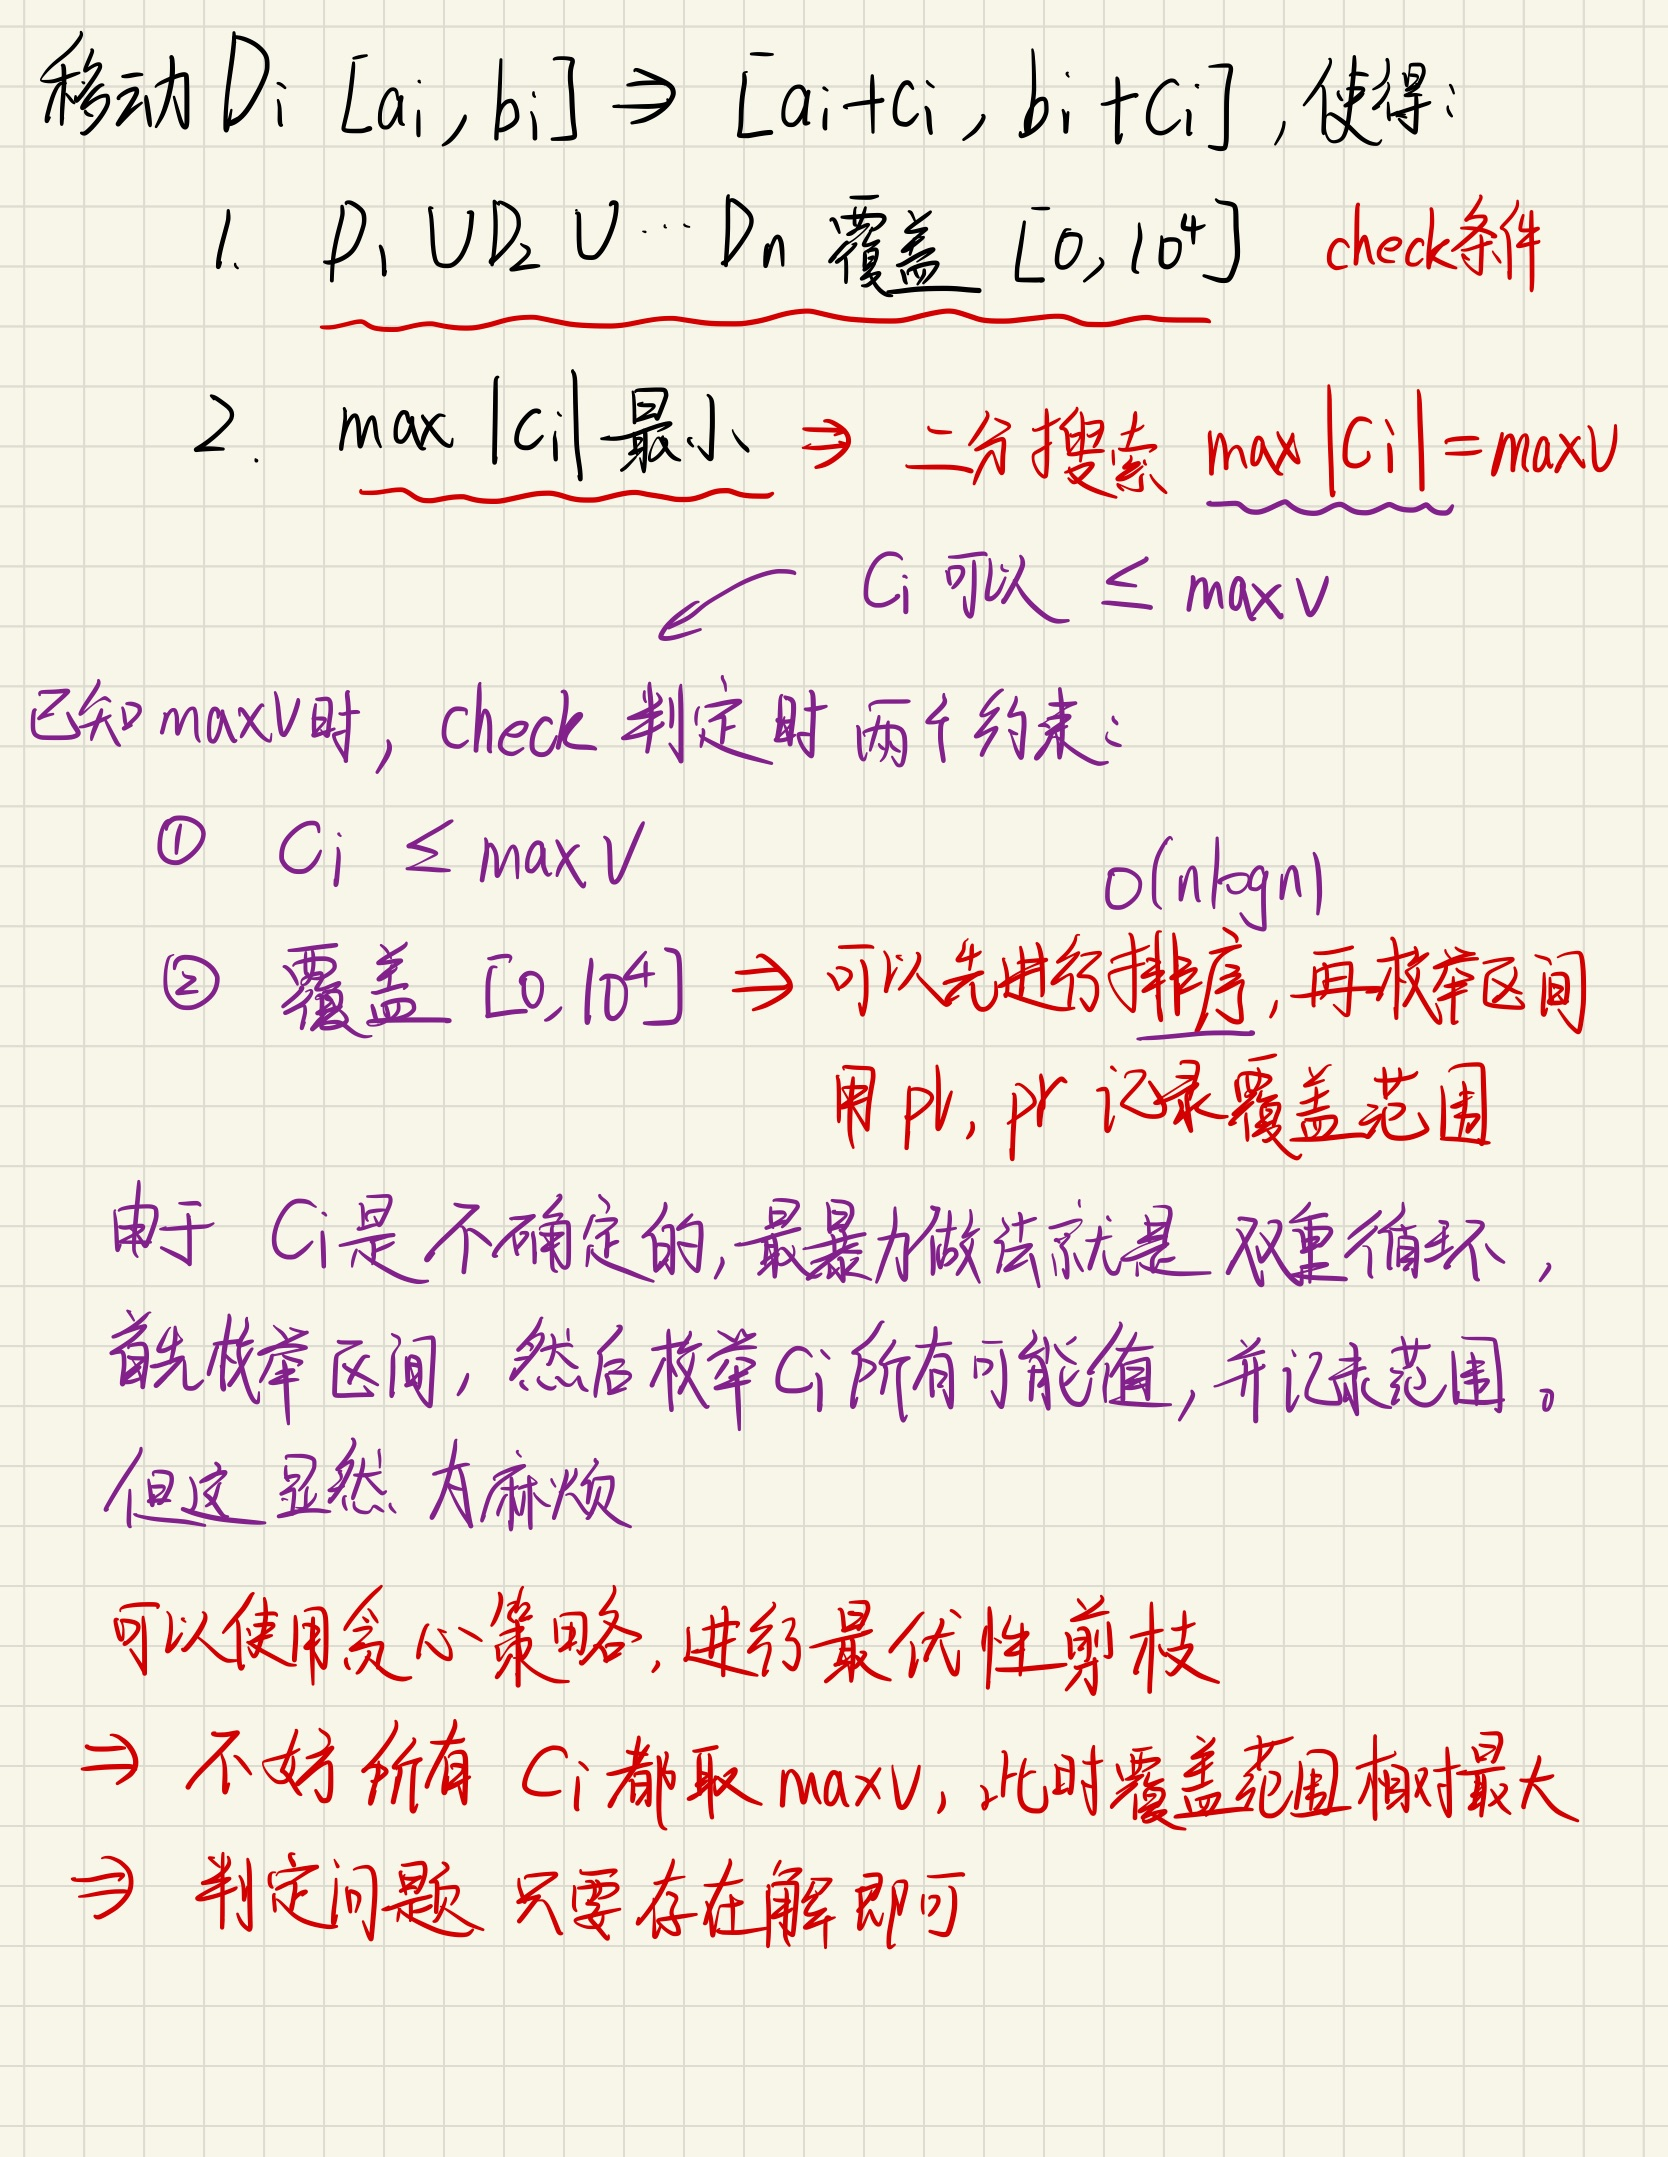 移动 Di [ai, bi] ⇒ [ai+ci, bi+ci], 使得:
1. D1 ∪ D2 ∪ ... Dn 覆盖 [0, 10^4] check条件
2. max |ci| 最小 ⇒ 二分搜索 max |Ci| = maxV
Ci 可以 ≤ maxV
已知 maxV时, check 判定时两个约束:
① Ci ≤ maxV
O(nlogn)
② 覆盖 [0, 10^4] ⇒ 可以先进行排序, 再枚举区间
用 pl, pr 记录覆盖范围
由于 Ci是不确定的, 最暴力做法就是 双重循环,
首先枚举区间, 然后枚举Ci所有可能值, 并记录范围。
但这显然太麻烦
可以使用贪心策略, 进行最优性剪枝
⇒ 不妨所有 Ci都取 maxV, 此时覆盖范围相对最大
⇒ 判定问题 只要存在解即可